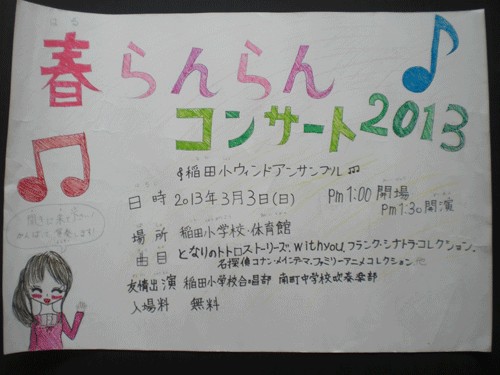 はる
春らんらん
コンサート2013
稲田小ウィンドアンサンブル
日時 2013年3月3日(日) Pm 1:00 開場
Pm 1:30 開演
場所 稲田小学校・体育館
曲目 となりのトトロストーリーズ、with you、フランク・シナトラ・コレクション、
名探偵コナン・メインテーマ、ファミリーアニメコレクション
友情出演 稲田小学校合唱部 南町中学校吹奏楽部
入場料 無料
聞きに来て
がんばって演奏します!